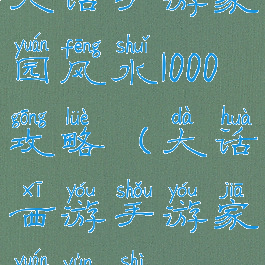 大话手游家
yuán fēng shuǐ
园风水1000
gōng lüè dà huà
攻略(大话
xī yóu shǒu yóu jiā
西游手游家
yuán yùn shì